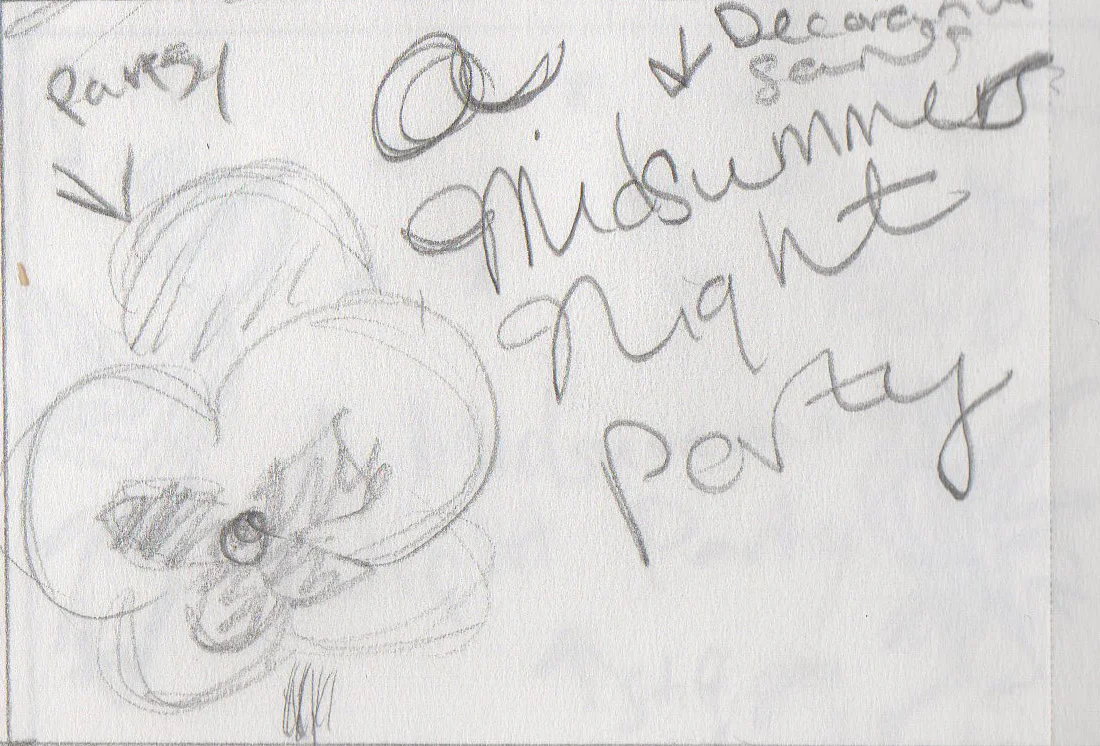 Pansy
Decorative
a
Midsummers
Night
party